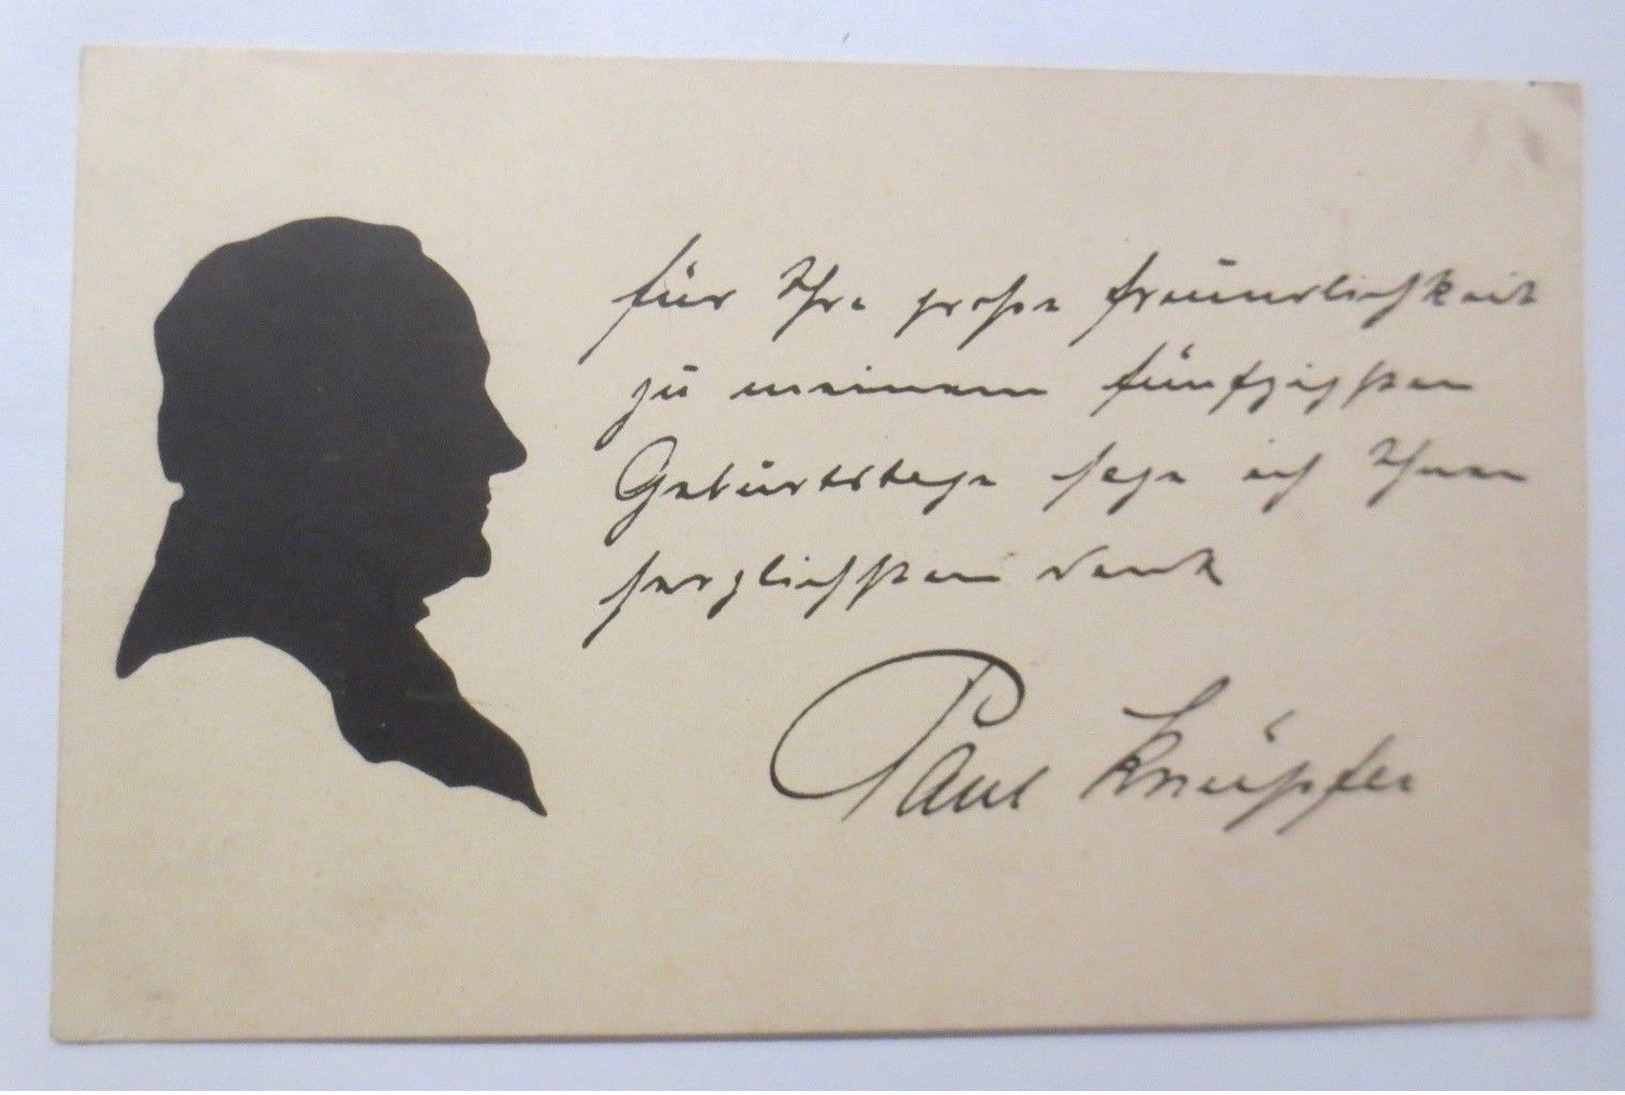 für Ihre große Freundlichkeit
zu meinem fünfzigsten
Geburtstage sage ich Ihnen
herzlichsten Dank
Paul Knüpfer